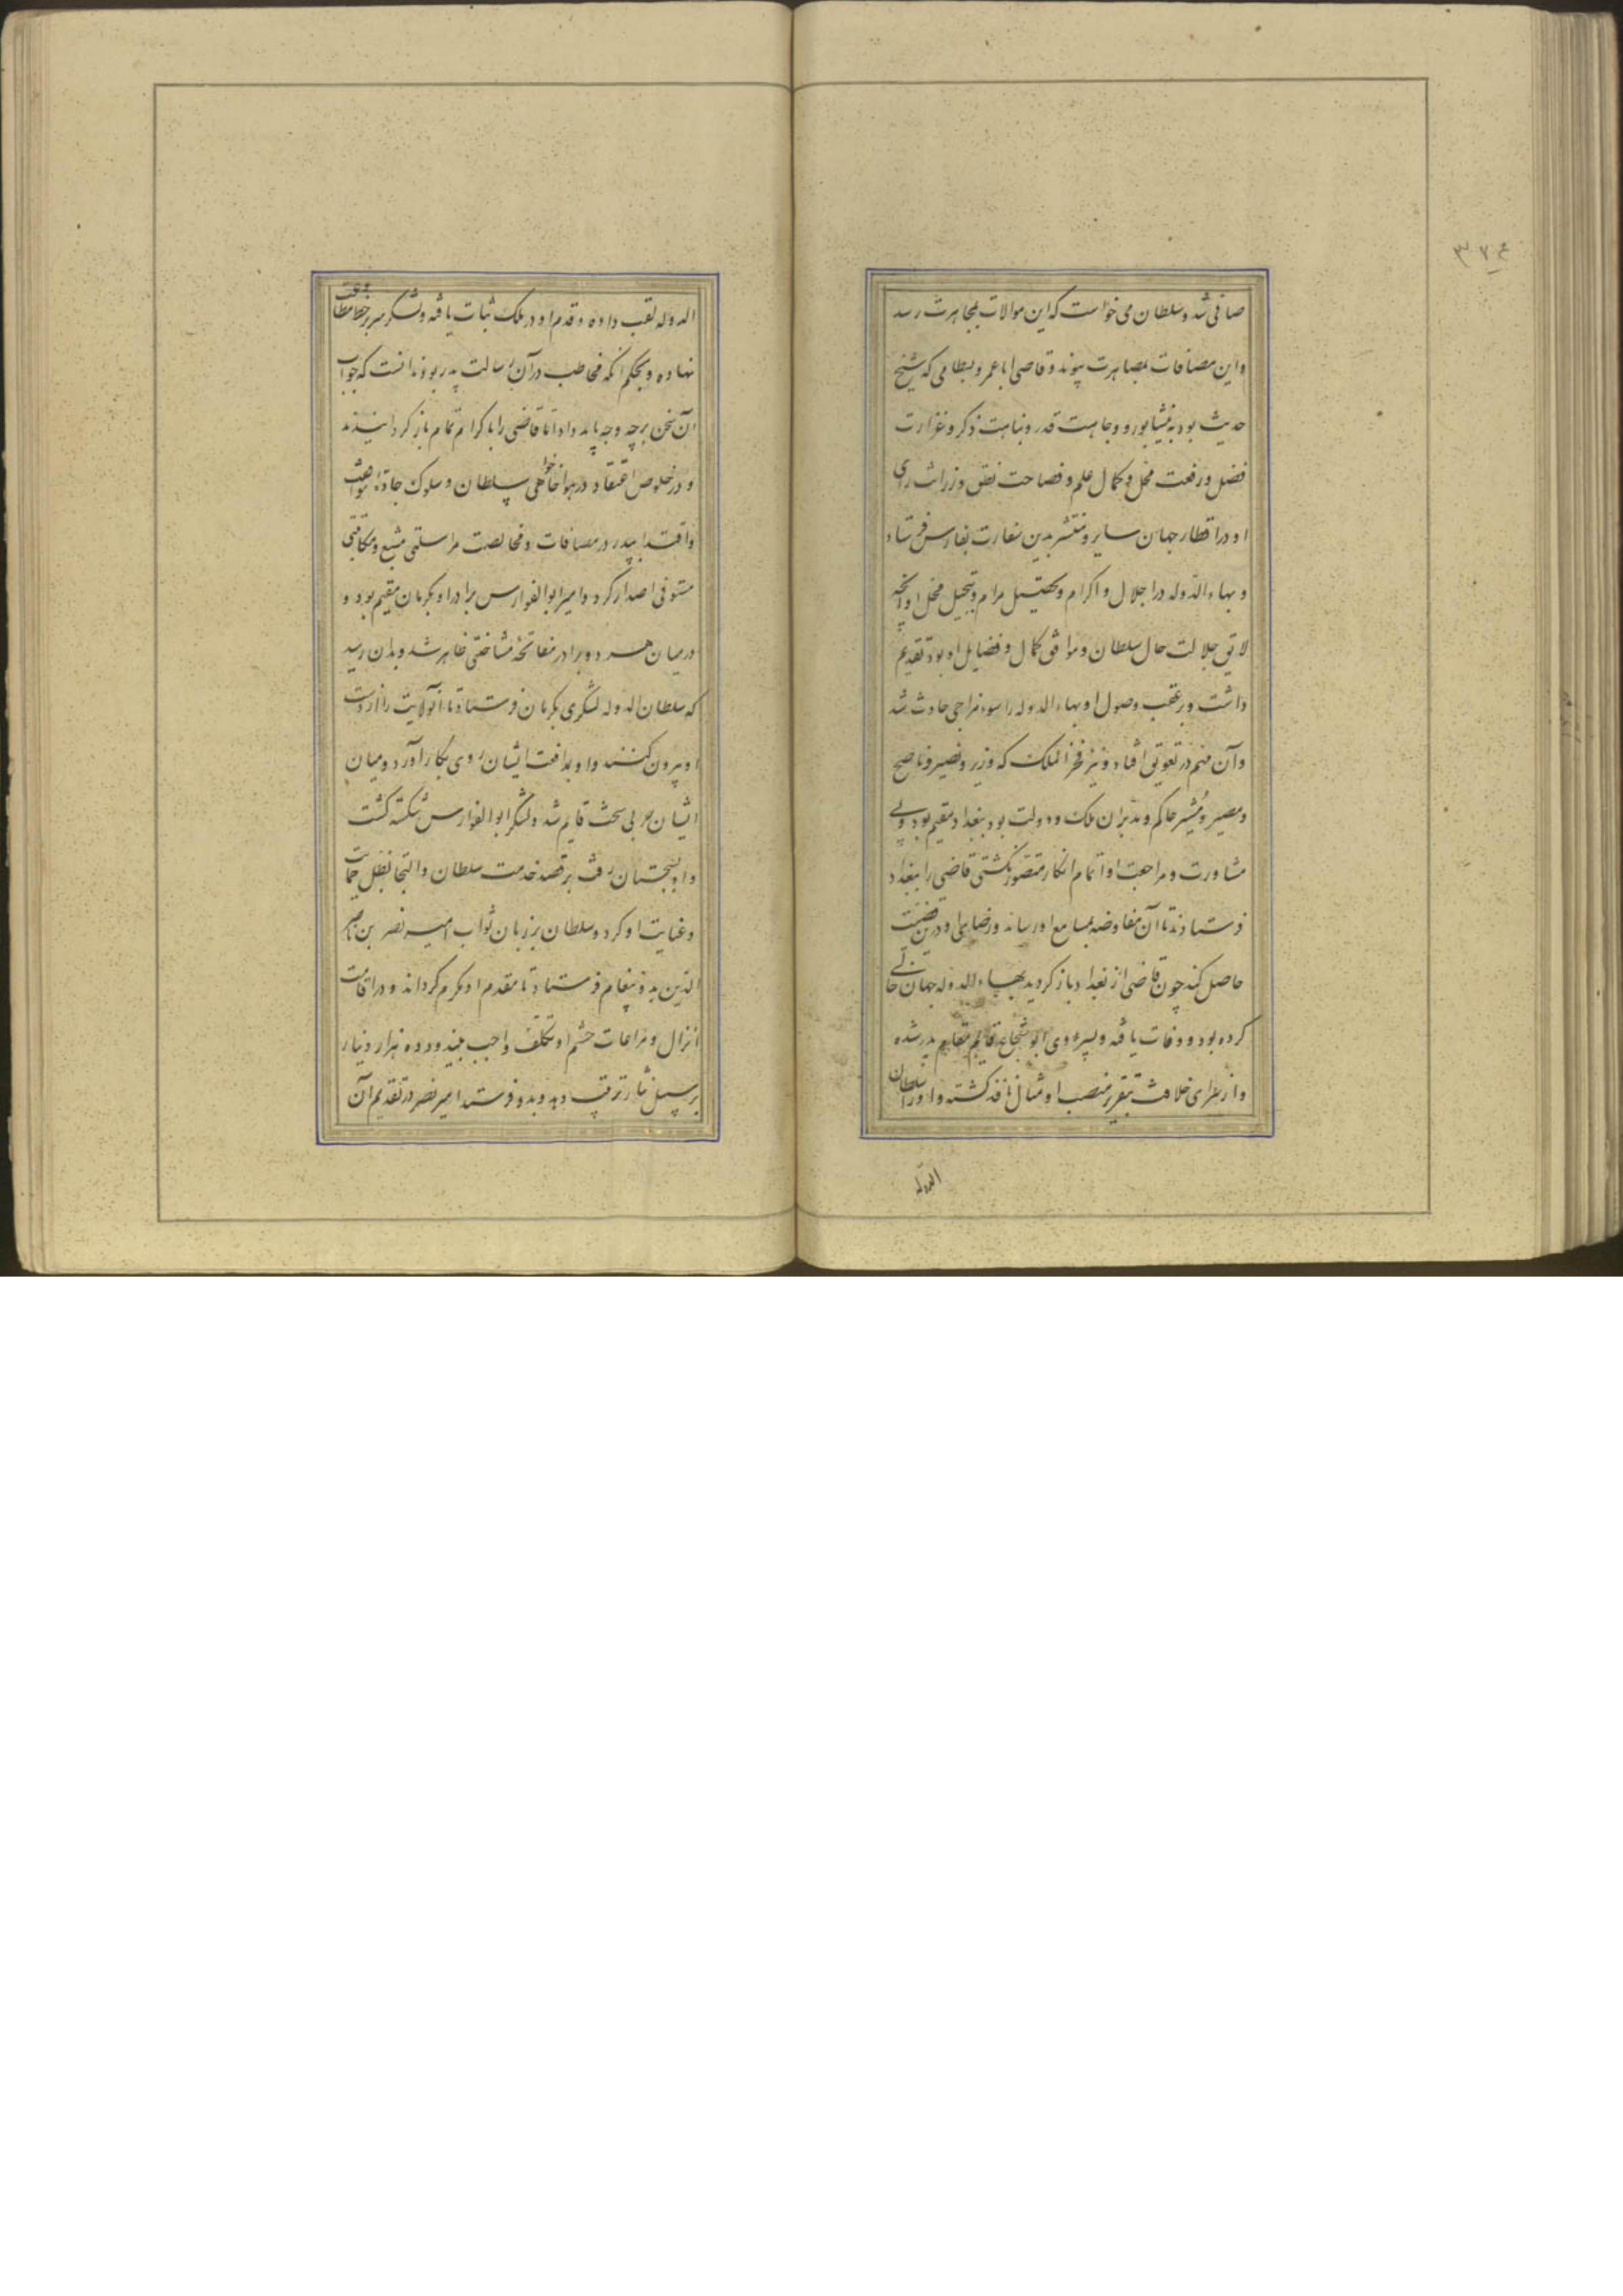 صافی شد و سلطان می خواست که این موالات بمجاهرت رسد
و این مصافات بمصاهرت پیوندد و قاضی ابا عمرو بسطامی که شیخ
حدیث بود به نیشابور و وجاهت قدر و نباهت ذکر و غزارت
فضل و رفعت محل و کمال علم و فصاحت نطق و زرانت رای
او در اقطار جهان سایر و منتشر بدین سفارت بفارس فرستاد
و بهاء الدوله در اجلال و اکرام و تحصیل مرام و تبجیل محل او آنچه
لایق جلالت حال سلطان و موافق کمال و فضایل او بود تقدیم
داشت و بر عقب وصول او بهاء الدوله را سوء مزاجی حادث شد
و آن مهم در تعویق افتاد و نیز فخر الملک که وزیر و نصیر و ناصح
و مصیر و مشیر حاکم و مدبر آن ملک و دولت بود ببغداد مقیم بود و بی
مشاورت و مراجعت او اتمام آن کار متصور نگشتی قاضی را ببغداد
فرستادند تا آن مفاوضه بمسامع او رساند و رضای او در این قضیت
حاصل کند چون قاضی از بغداد باز گردید بهاء الدوله جهان خالی
کرده بود و وفات یافته و پسر وی ابو شجاع قایم مقام پدر شده
و از سرای خلافت بتقریر منصب او مثال نافذ گشته و او را سلطان
الدوله
الدوله لقب داده و قدم او در ملک ثبات یافته و لشکر سر بر خط مطاوعت
نهاده و بحکم آنکه مخاطب در آن رسالت پدر بود ندانست که جواب
آن سخن بر چه وجه باید داد اما قاضی را با کرام تمام باز گردانیدند
و در خلوص اعتقاد در هواخواهی سلطان و سلوک جاده موافقت
و اقتدا بپدر در مصافات و مخالصت مراسلتی مشبع و مکاتبتی
مستوفی اصدار کرد و امیر ابو الفوارس برادر او بکرمان مقیم بود و
در میان هر دو برادر مفاتحهٔ مشاختی ظاهر شد و بدان رسید
که سلطان الدوله لشکری بکرمان فرستاد تا آنولایت را از دست
او بیرون کنند و او بمدافعت ایشان روی بکار آورد و میان
ایشان حربی سخت قایم شد و لشکر ابو الفوارس شکسته گشت
و او بسجستان رفت بر قصد خدمت سلطان و التجا بظل حمایت
و عنایت او کرد و سلطان بر زبان نواب امیر نصر بن ناصر
الدین بدو پیغام فرستاد تا مقدم او مکرم گرداند و در اقامت
انزال و مراعات حشم او تکلف واجب بیند و ده هزار دینار
بر سبیل نثار ترتیب دهد و بدو فرستد امیر نصر در تقدیم آن